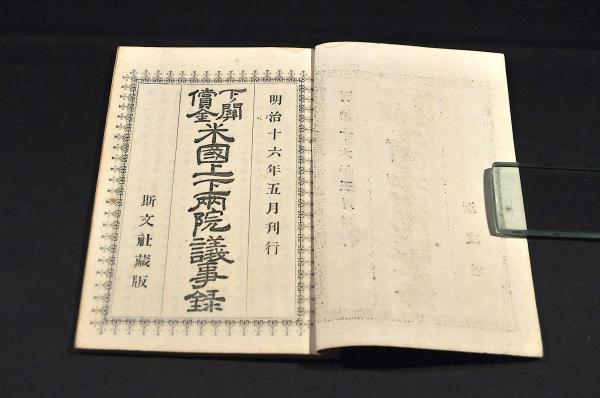 明治十六年五月刊行
下ノ関
償金
米國上下兩院議事録
斯文社藏版